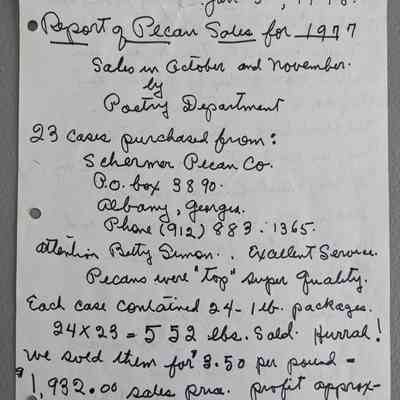 Report of Pecan Sales for 1977
Sales in October and November.
by
Poetry Department
23 cases purchased from:
Schermer Pecan Co.
P.O. box 3890.
Albany, Georgia.
Phone (912) 883-1365.
attention Betty Simon.. Excellent Service.
Pecans were "top" super quality.
Each case contained 24-1 lb. packages.
24 X 23 = 552 lbs. Sold. Hurrah!
We sold them for $3.50 per pound =
$1,932.00 sales price. profit approx-